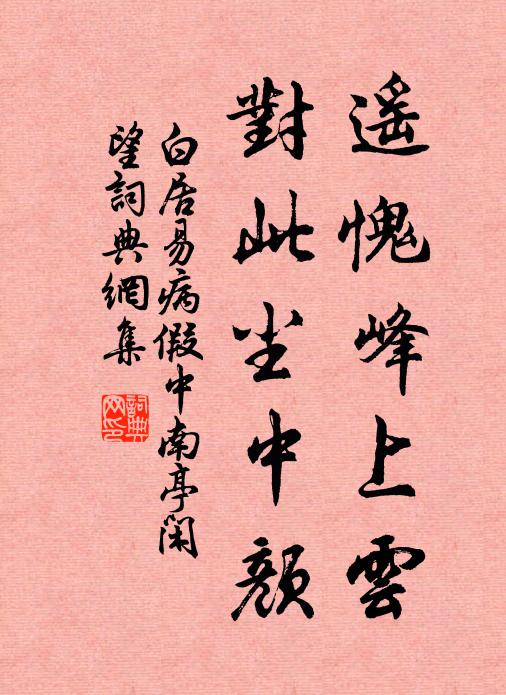 遥愧峰上雲
對此尘中顔
白居易病假中南亭闲
望詞典網集
詞典
网印